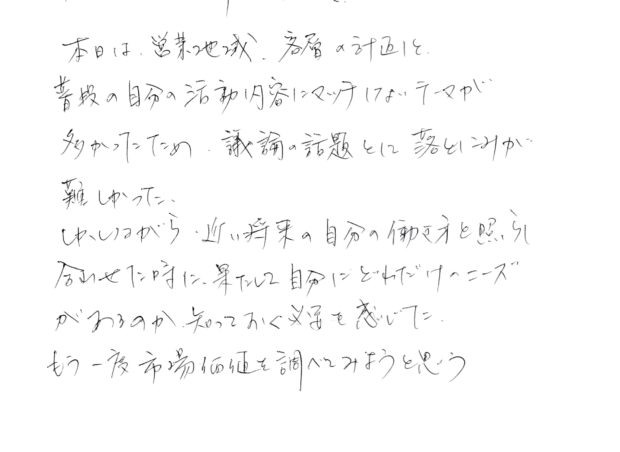 本日は、営業地域、客層の計画と、
普段の自分の活動内容にマッチしないテーマが
多かったため、議論の話題として落としこみが
難しかった。
しかしながら、近い将来の自分の働き方と照らし
合わせた時に、果たして自分にどれだけのニーズ
があるのか、知っておく必要を感じた。
もう一度市場価値を調べてみようと思う